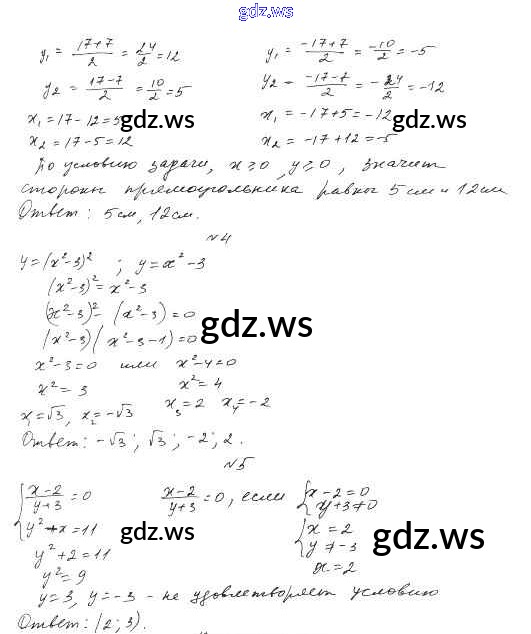 gdz.ws
y₁ = (17+7)/2 = 24/2 = 12    y₁ = (-17+7)/2 = -10/2 = -5
y₂ = (17-7)/2 = 10/2 = 5    y₂ = (-17-7)/2 = -24/2 = -12
x₁ = 17-12 = 5    x₁ = -17+5 = -12
gdz.ws    gdz.ws
x₂ = 17-5 = 12    x₂ = -17+12 = -5
По условию задачи, x ⩾ 0, y ⩾ 0, значит
стороны прямоугольника равны 5 см и 12 см
Ответ: 5 см, 12 см.
№4
y = (x²-3)² ; y = x²-3
(x²-3)² = x²-3
(x²-3)² - (x²-3) = 0
gdz.ws
(x²-3)(x²-3-1) = 0
x²-3=0 или x²-4=0
x² = 3    x² = 4
x₁=√3, x₂=-√3    x₃=2  x₄=-2
Ответ: -√3; √3; -2; 2.
№5
{ (x-2)/(y+3) = 0    (x-2)/(y+3) = 0, если { x-2=0
y²+x=11    y+3≠0
gdz.ws    gdz.ws
y²+2=11    { x=2
y²=9    y≠-3
x=2
y=3, y=-3 - не удовлетворяет условию
Ответ: (2; 3).